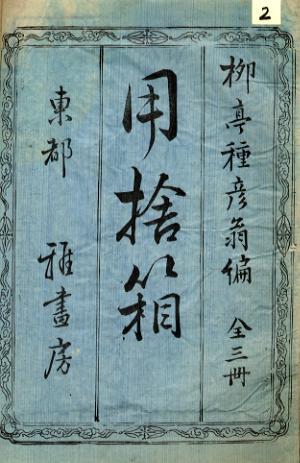 2
柳亭種彦翁編 全三冊
用捨箱
東都 雅書房